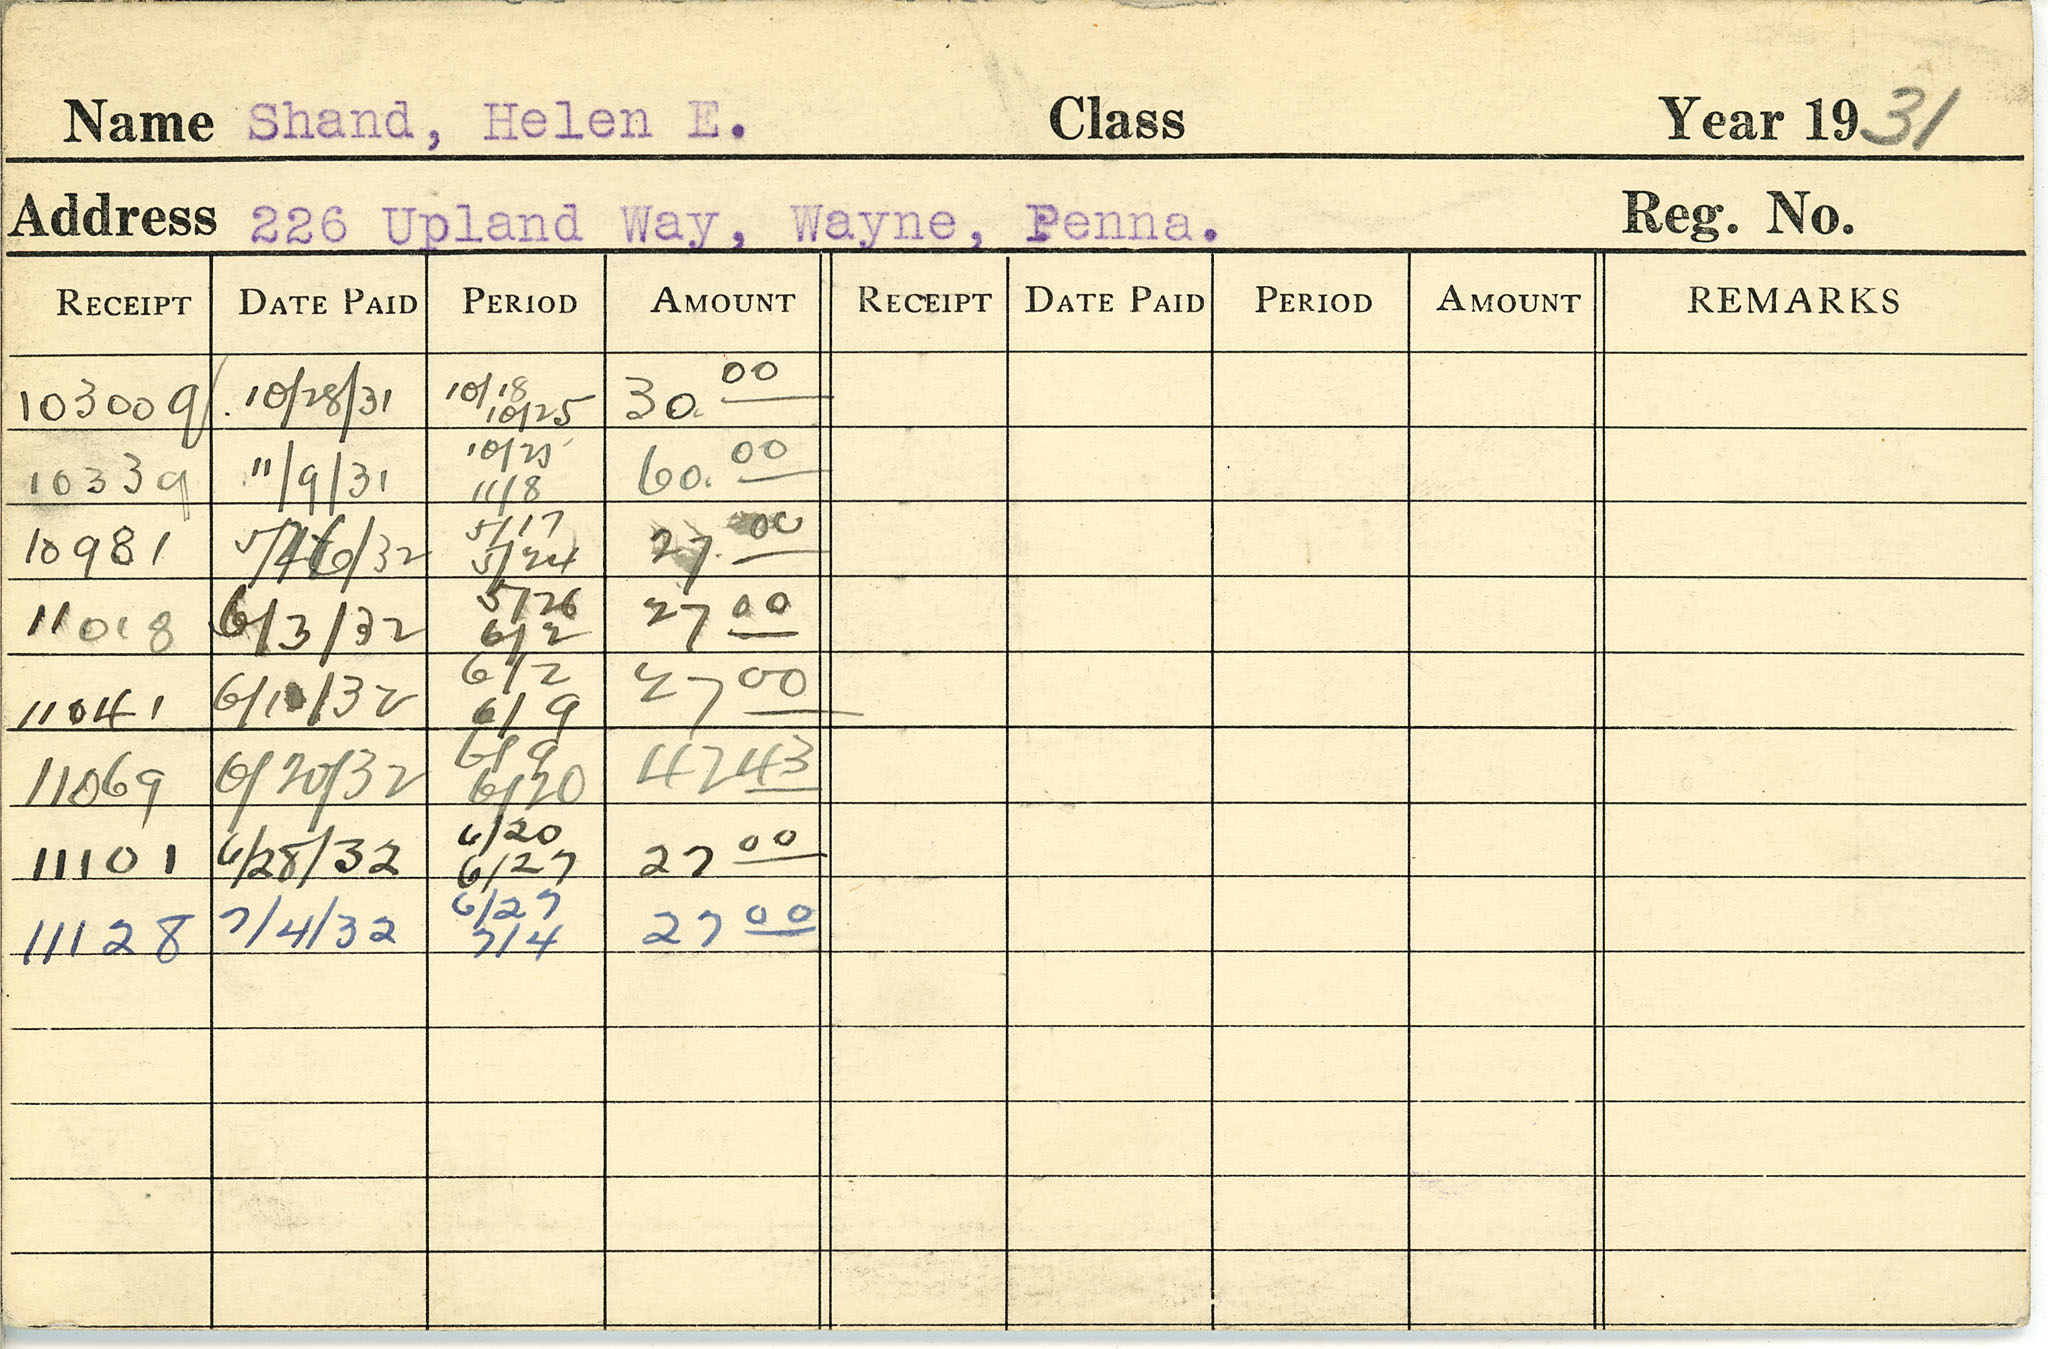 Name Shand, Helen E. Class Year 1931
Address 226 Upland Way, Wayne, Penna. Reg. No.
RECEIPT DATE PAID PERIOD AMOUNT RECEIPT DATE PAID PERIOD AMOUNT REMARKS
103009 10/28/31 10/18 10/25 30.00
10339 11/9/31 10/25 11/8 60.00
10981 5/17 5/24 27.00
11018 6/3/32 5/26 6/2 27 00
11041 6/10/32 6/2 6/9 27 00
11069 6/20/32 6/9 6/20 47 43
11101 6/28/32 6/20 6/27 27 00
11128 7/4/32 6/27 7/4 27 00